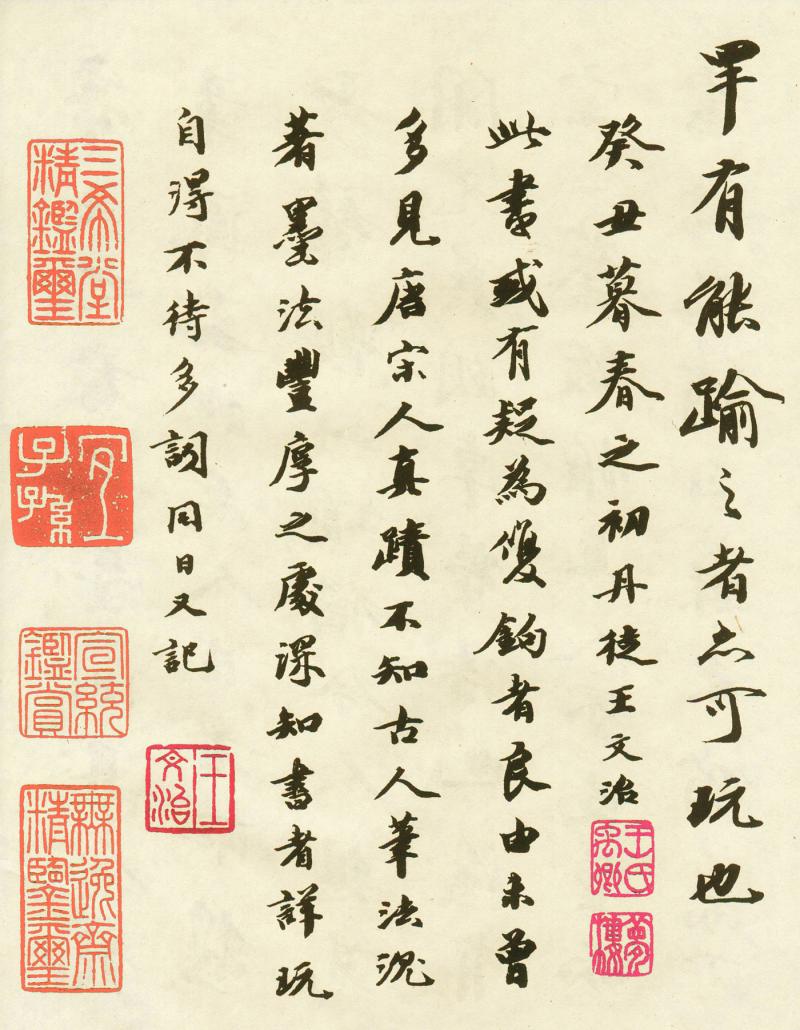 罕有能踰之者亦可玩也
癸丑暮春之初丹徒王文治
此書或有疑為雙鉤者良由未曾
多見唐宋人真蹟不知古人筆法沉
著墨法豐厚之處深知書者詳玩
自得不待多詞同日又記
王氏禹卿
夢樓
王文治
三希堂精鑑璽
宜子孫
宣統鑑賞
無逸齋精鑒璽